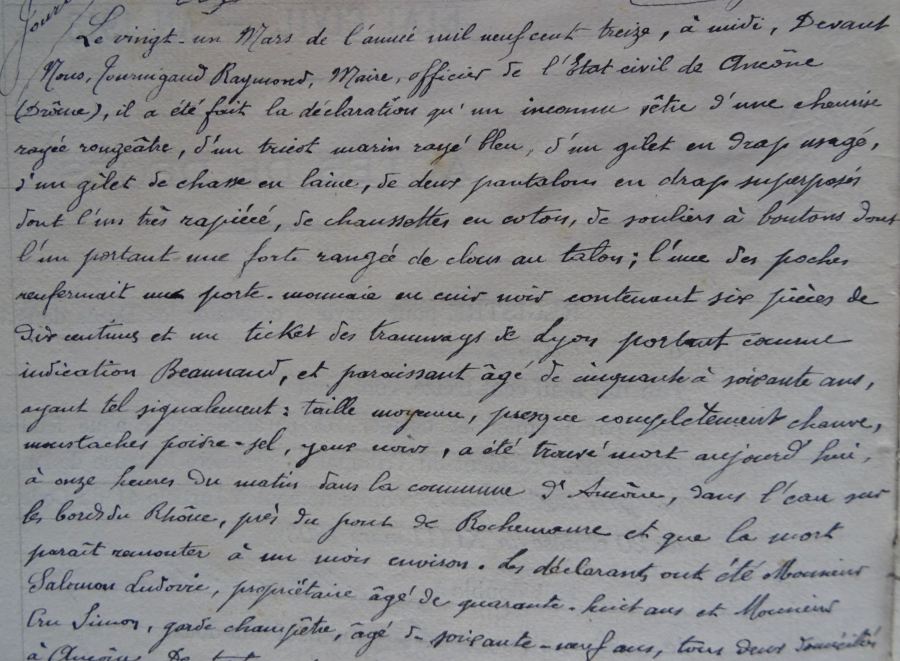 Le vingt-un Mars de l'année mil neuf cent treize, à midi, Devant
Nous, Jourmigaud Raymond, Maire, officier de l'Etat civil de Ancône
(Drôme), il a été fait la déclaration qu'un inconnu vêtu d'une chemise
rayée rougeâtre, d'un tricot marin rayé bleu, d'un gilet en drap usagé,
d'un gilet de chasse en laine, de deux pantalons en drap superposés
dont l'un très rapiécé, de chaussettes en coton, de souliers à boutons dont
l'un portant une forte rangée de clous au talon; l'une des poches
renfermait un porte-monnaie en cuir noir contenant six pièces de
dix centimes et un ticket des tramways de Lyon portant comme
indication Beaunand, et paraissant âgé de cinquante à soixante ans,
ayant tel signalement: taille moyenne, presque complètement chauve,
moustaches poivre-sel, yeux noirs, a été trouvé mort aujourd'hui,
à onze heures du matin dans la commune d'Ancône, dans l'eau sur
les bords du Rhône, près du pont de Rochemaure et que la mort
paraît remonter à un mois environ. Les déclarants ont été Monsieur
Salomon Ludovic, propriétaire âgé de quarante-huit ans et Monsieur
Cru Simon, garde champêtre, âgé de soixante-neuf ans, tous deux domiciliés
à Ancône